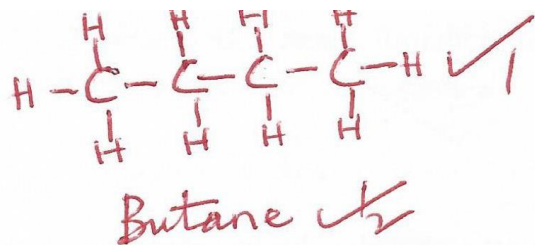 H H H H
H - C - C - C - C - H ✓ 1
H H H H
Butane ✓½